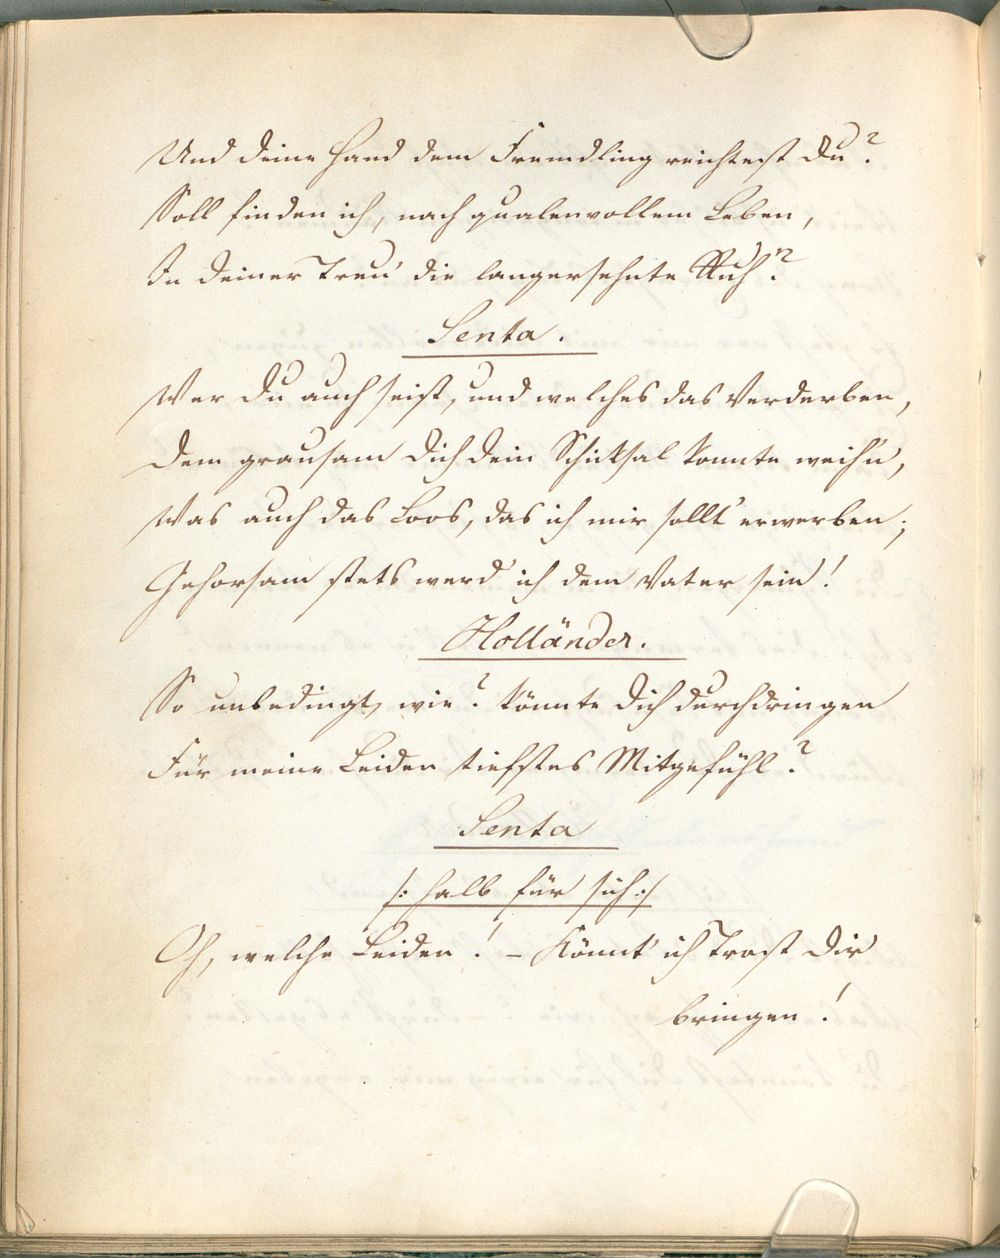 Und deine Hand dem Fremdling reichtest Du?
Soll finden ich, nach qualenvollem Leben,
In deiner Treu' die langersehnte Ruh'?
Senta.
Wer Du auch seist, und welches das Verderben,
Dem grausam Dich dein Schicksal konnte weih'n,
Was auch das Loos, das ich mir sollt' erwerben;
Gehorsam stets werd' ich dem Vater sein!
Holländer.
So unbedingt, wie? könnte Dich durchdringen
Für meine Leiden tiefstes Mitgefühl?
Senta
/: halb für sich :/
Oh, welche Leiden! – Könnt' ich Trost Dir
bringen!